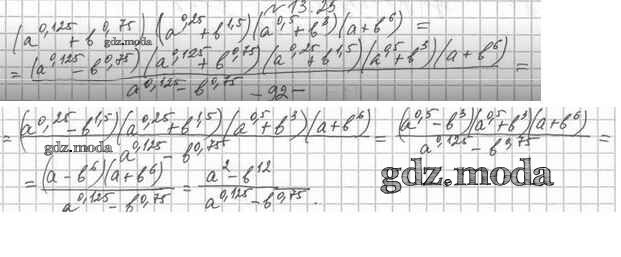 № 13.25
(a^0,125 + b^0,75)(a^0,25 + b^1,5)(a^0,5 + b^3)(a + b^6) =
gdz.moda
= (a^0,125 - b^0,75)(a^0,125 + b^0,75)(a^0,25 + b^1,5)(a^0,5 + b^3)(a + b^6) / a^0,125 - b^0,75 =
- 92 -
= (a^0,25 - b^1,5)(a^0,25 + b^1,5)(a^0,5 + b^3)(a + b^6) / a^0,125 - b^0,75 = (a^0,5 - b^3)(a^0,5 + b^3)(a + b^6) / a^0,125 - b^0,75 =
gdz.moda
= (a - b^6)(a + b^6) / a^0,125 - b^0,75 = a^2 - b^12 / a^0,125 - b^0,75.
gdz.moda